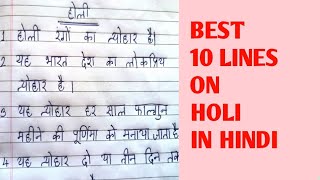 होली
1 होली रंगों का त्योहार है।
2 यह भारत देश का लोकप्रिय
त्योहार है।
3 यह त्योहार हर साल फाल्गुन
महीने की पूर्णिमा को मनाया जाता है
4 यह त्योहार दो या तीन दिन तक
BEST
10 LINES
ON
HOLI
IN HINDI